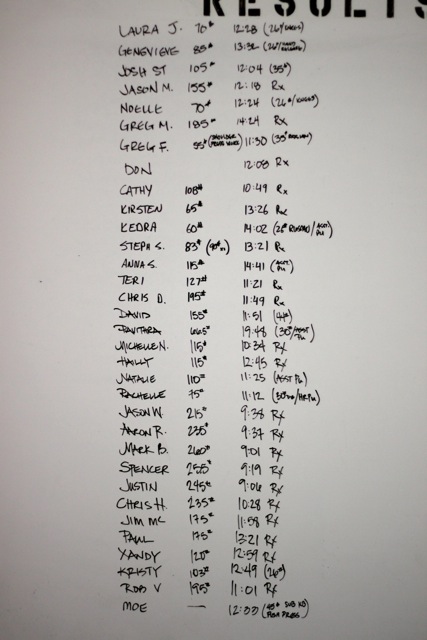 RESULTS
LAURA J. 70# 12:28 (26#/KNEES)
GENEVIEVE 85# 13:32
JOSH ST 105# 12:04 (35#)
JASON M. 155# 12:18 Rx
NOELLE 70# 12:24 (26#/KNEES)
GREG M. 185# 14:24 Rx
GREG F. 95# 11:30
DON 12:08 Rx
CATHY 108# 10:49 Rx
KIRSTEN 65# 13:26 Rx
KEDRA 60# 14:02 (26# RUSSIAN/ASST. PU)
STEPH S. 83# 13:21 Rx
ANNA S. 115# 14:41 (ASST. PU)
TERI 127# 11:21 Rx
CHRIS D. 195# 11:49 Rx
DAVID 155# 11:51 (44#)
PAVITARA 19:48 (30#/ASST PU)
MICHELLE N. 115# 10:34 Rx
HAILLY 115# 12:45 Rx
NATALIE 110# 11:25 (ASST PU)
RACHELLE 75# 11:12
JASON W. 215# 9:38 Rx
AARON R. 235# 9:37 Rx
MARK B. 260# 9:01 Rx
SPENCER 255# 9:19 Rx
JUSTIN 245# 9:06 Rx
CHRIS H. 235# 10:28 Rx
JIM MC 175# 11:58 Rx
PAUL 175# 13:21 Rx
XANDY 120# 12:59 Rx
KRISTY 103# 12:49 (26#)
ROB V 195# 11:01 Rx
MOE — 12:33 (45# SUB KB PUSH PRESS)